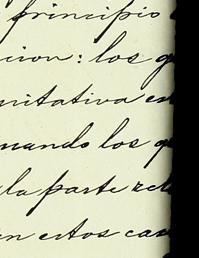 principio
cion: los g
nitativa en
uando los q
la parte rel
en estos cas